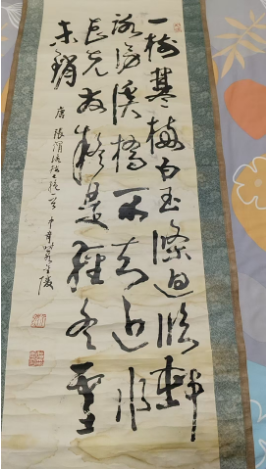 一樹寒梅白玉條迥臨邨
路傍溪橋不知近水
花先發疑是經冬雪
未銷
唐 張謂